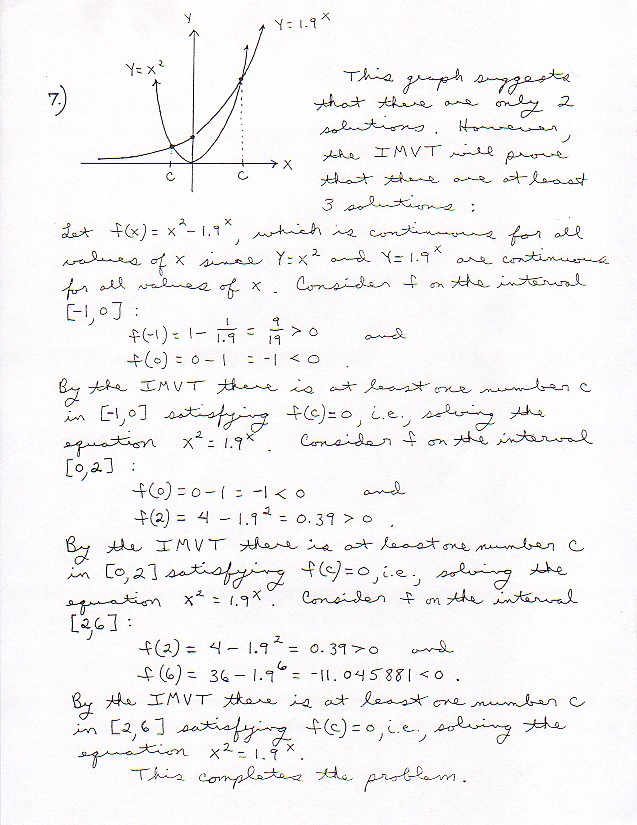 Y
Y = 1.9^x
Y = x^2
7.)
X
C C
This graph suggests
that there are only 2
solutions. However,
the IMVT will prove
that there are at least
3 solutions :
Let f(x) = x^2 - 1.9^x, which is continuous for all
values of x since Y = x^2 and Y = 1.9^x are continuous
for all values of x. Consider f on the interval
[-1,0] :
f(-1) = 1 - 1/1.9 = 9/19 > 0 and
f(0) = 0 - 1 = -1 < 0 .
By the IMVT there is at least one number c
in [-1,0] satisfying f(c) = 0, i.e., solving the
equation x^2 = 1.9^x. Consider f on the interval
[0,2] :
f(0) = 0 - 1 = -1 < 0 and
f(2) = 4 - 1.9^2 = 0.39 > 0 .
By the IMVT there is at least one number c
in [0,2] satisfying f(c) = 0, i.e., solving the
equation x^2 = 1.9^x. Consider f on the interval
[2,6] :
f(2) = 4 - 1.9^2 = 0.39 > 0 and
f(6) = 36 - 1.9^6 = -11.045881 < 0 .
By the IMVT there is at least one number c
in [2,6] satisfying f(c) = 0, i.e., solving the
equation x^2 = 1.9^x.
This completes the problem.